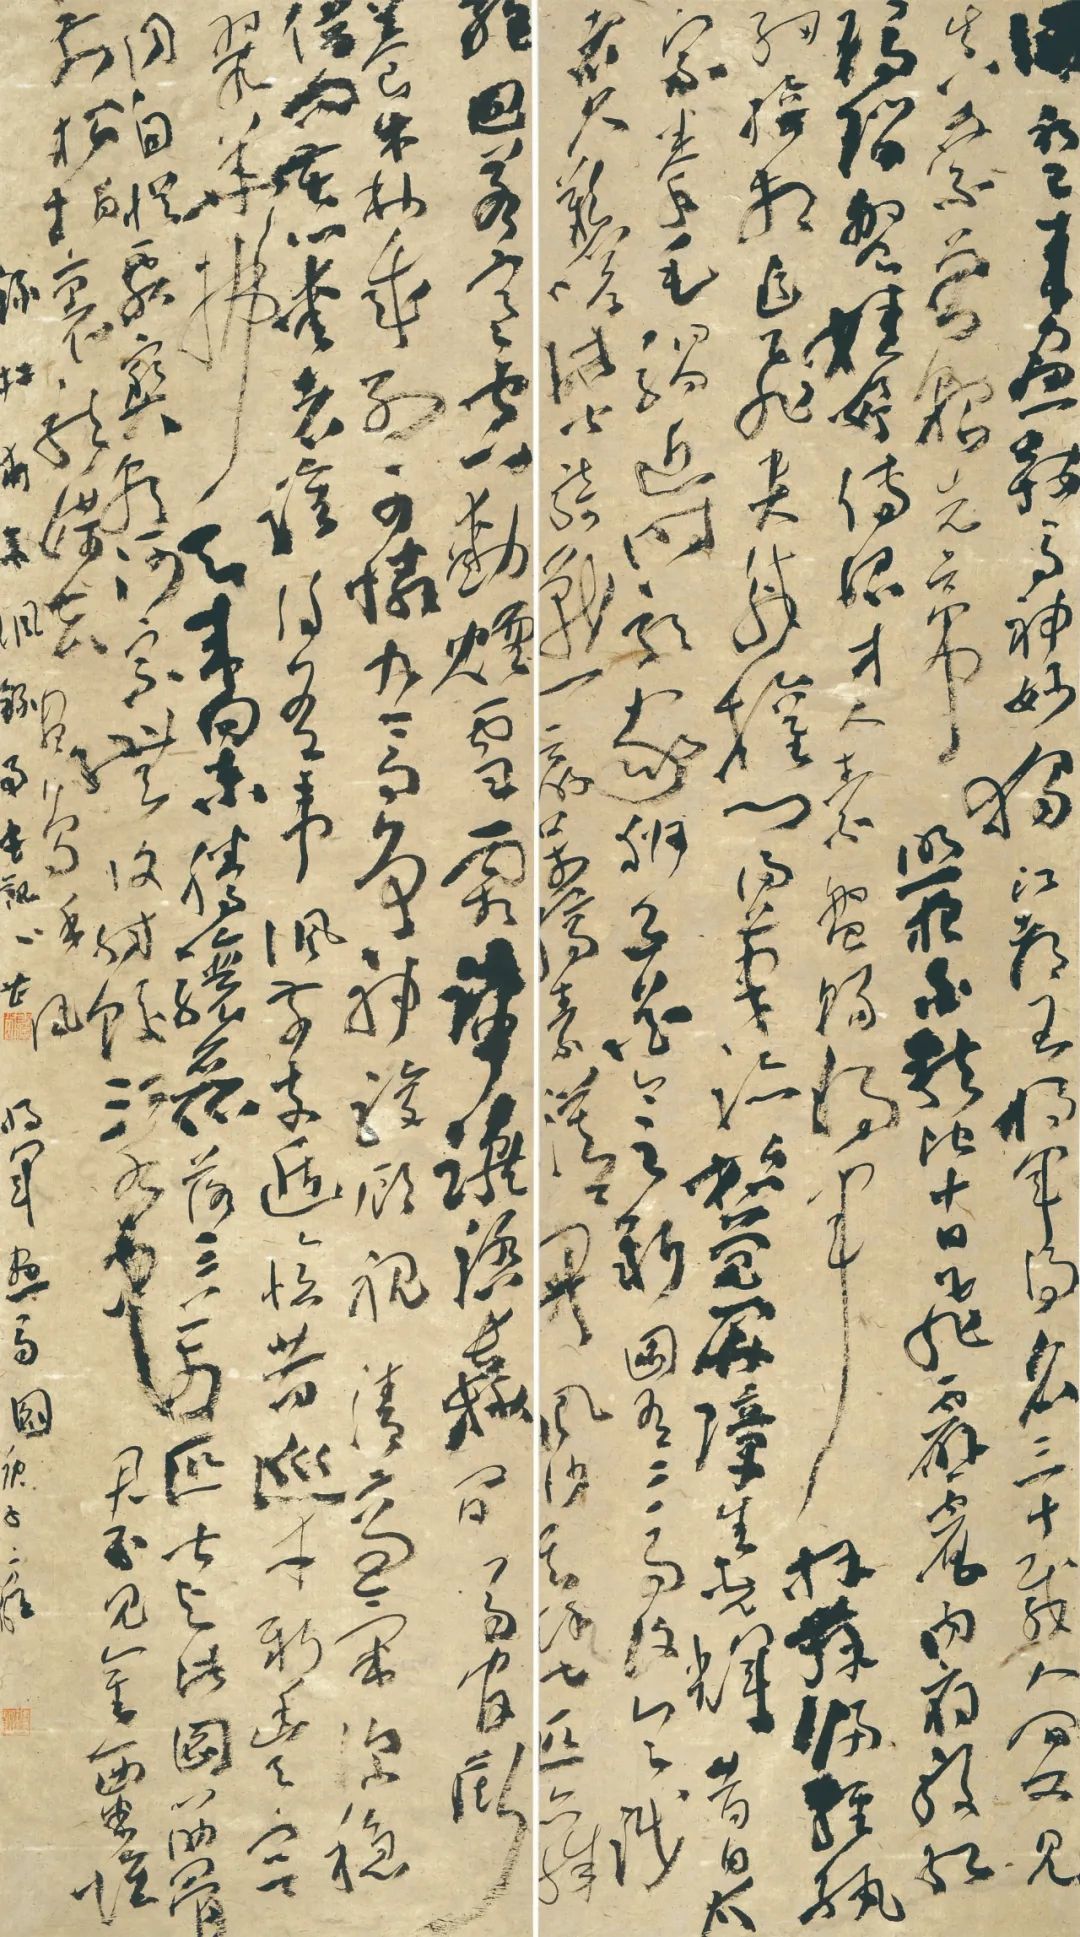 國初已來畫鞍馬神妙獨江都王將軍得名三十載人間又見
真乘黃曾貌先帝照夜白龍池十日飛霹靂內府殷紅
瑪瑙盤婕妤傳詔才人索盤賜將軍拜舞歸輕紈
細綺相追飛貴戚權門得筆跡始覺屏障生光輝昔日太
宗拳毛騧近時郭家獅子花今之新圖有二馬復令識
者久嘆嗟此皆騎戰一敵萬縞素漠漠開風沙其餘七匹亦殊
絕迥若寒空動煙雪霜蹄蹴踏長楸間馬官廝
養森成列可憐九馬爭神駿顧視清高氣深穩
借問苦心愛者誰後有韋諷前支遁憶昔巡幸新豐宮
翠華拂天來向東騰驤磊落三萬匹皆與此圖筋骨
同自從獻寶朝河宗無復射蛟江水中君不見金粟堆
前松柏裏龍媒去盡鳥呼風
錄杜甫韋諷錄事宅觀曹將軍畫馬圖